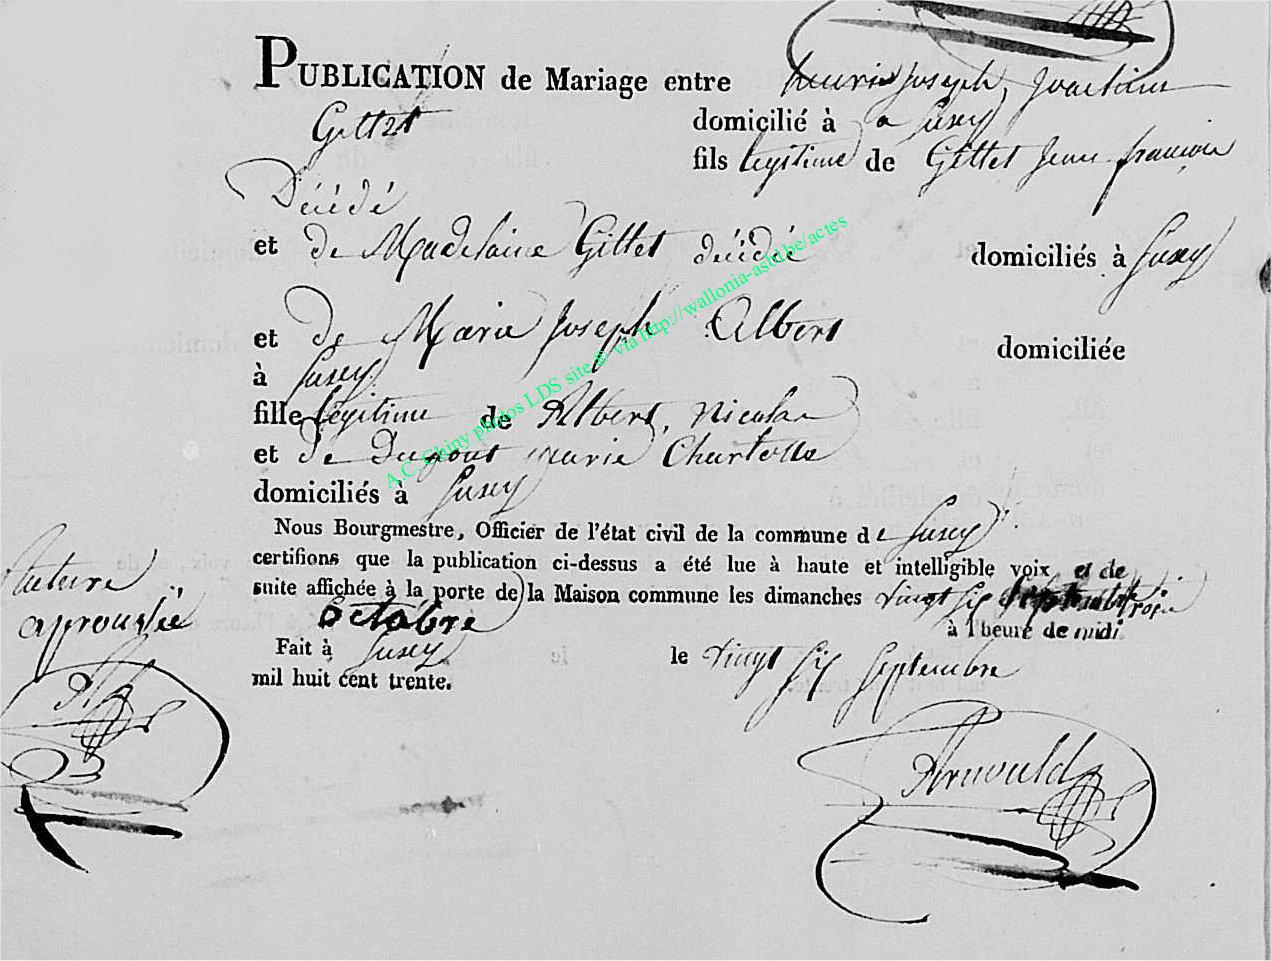 PUBLICATION de Mariage entre henrie Joseph, Joachim
Gillet domicilié à a Susey
fils legitime de Gillet Jean françoi
Décédé
et de Madelaine Gillet décédée domiciliés à Susey
et de Marie Joseph Albert domiciliée
à Susey
fille légitime de Albert, Nicolas
et de Dupont marie Charlotte
domiciliés à Susey
Nous Bourgmestre, Officier de l'état civil de la commune de Susey
certifions que la publication ci-dessus a été lue à haute et intelligible voix et de
suite affichée à la porte de la Maison commune les dimanches vingt six Septembre trois
octobre à l'heure de midi
Fait à Susey le vingt six Septembre
mil huit cent trente.
Rature
approuvée
Arnould
A.C. Chiny photos LDS site © via http://wallonia-asbl.be/actes